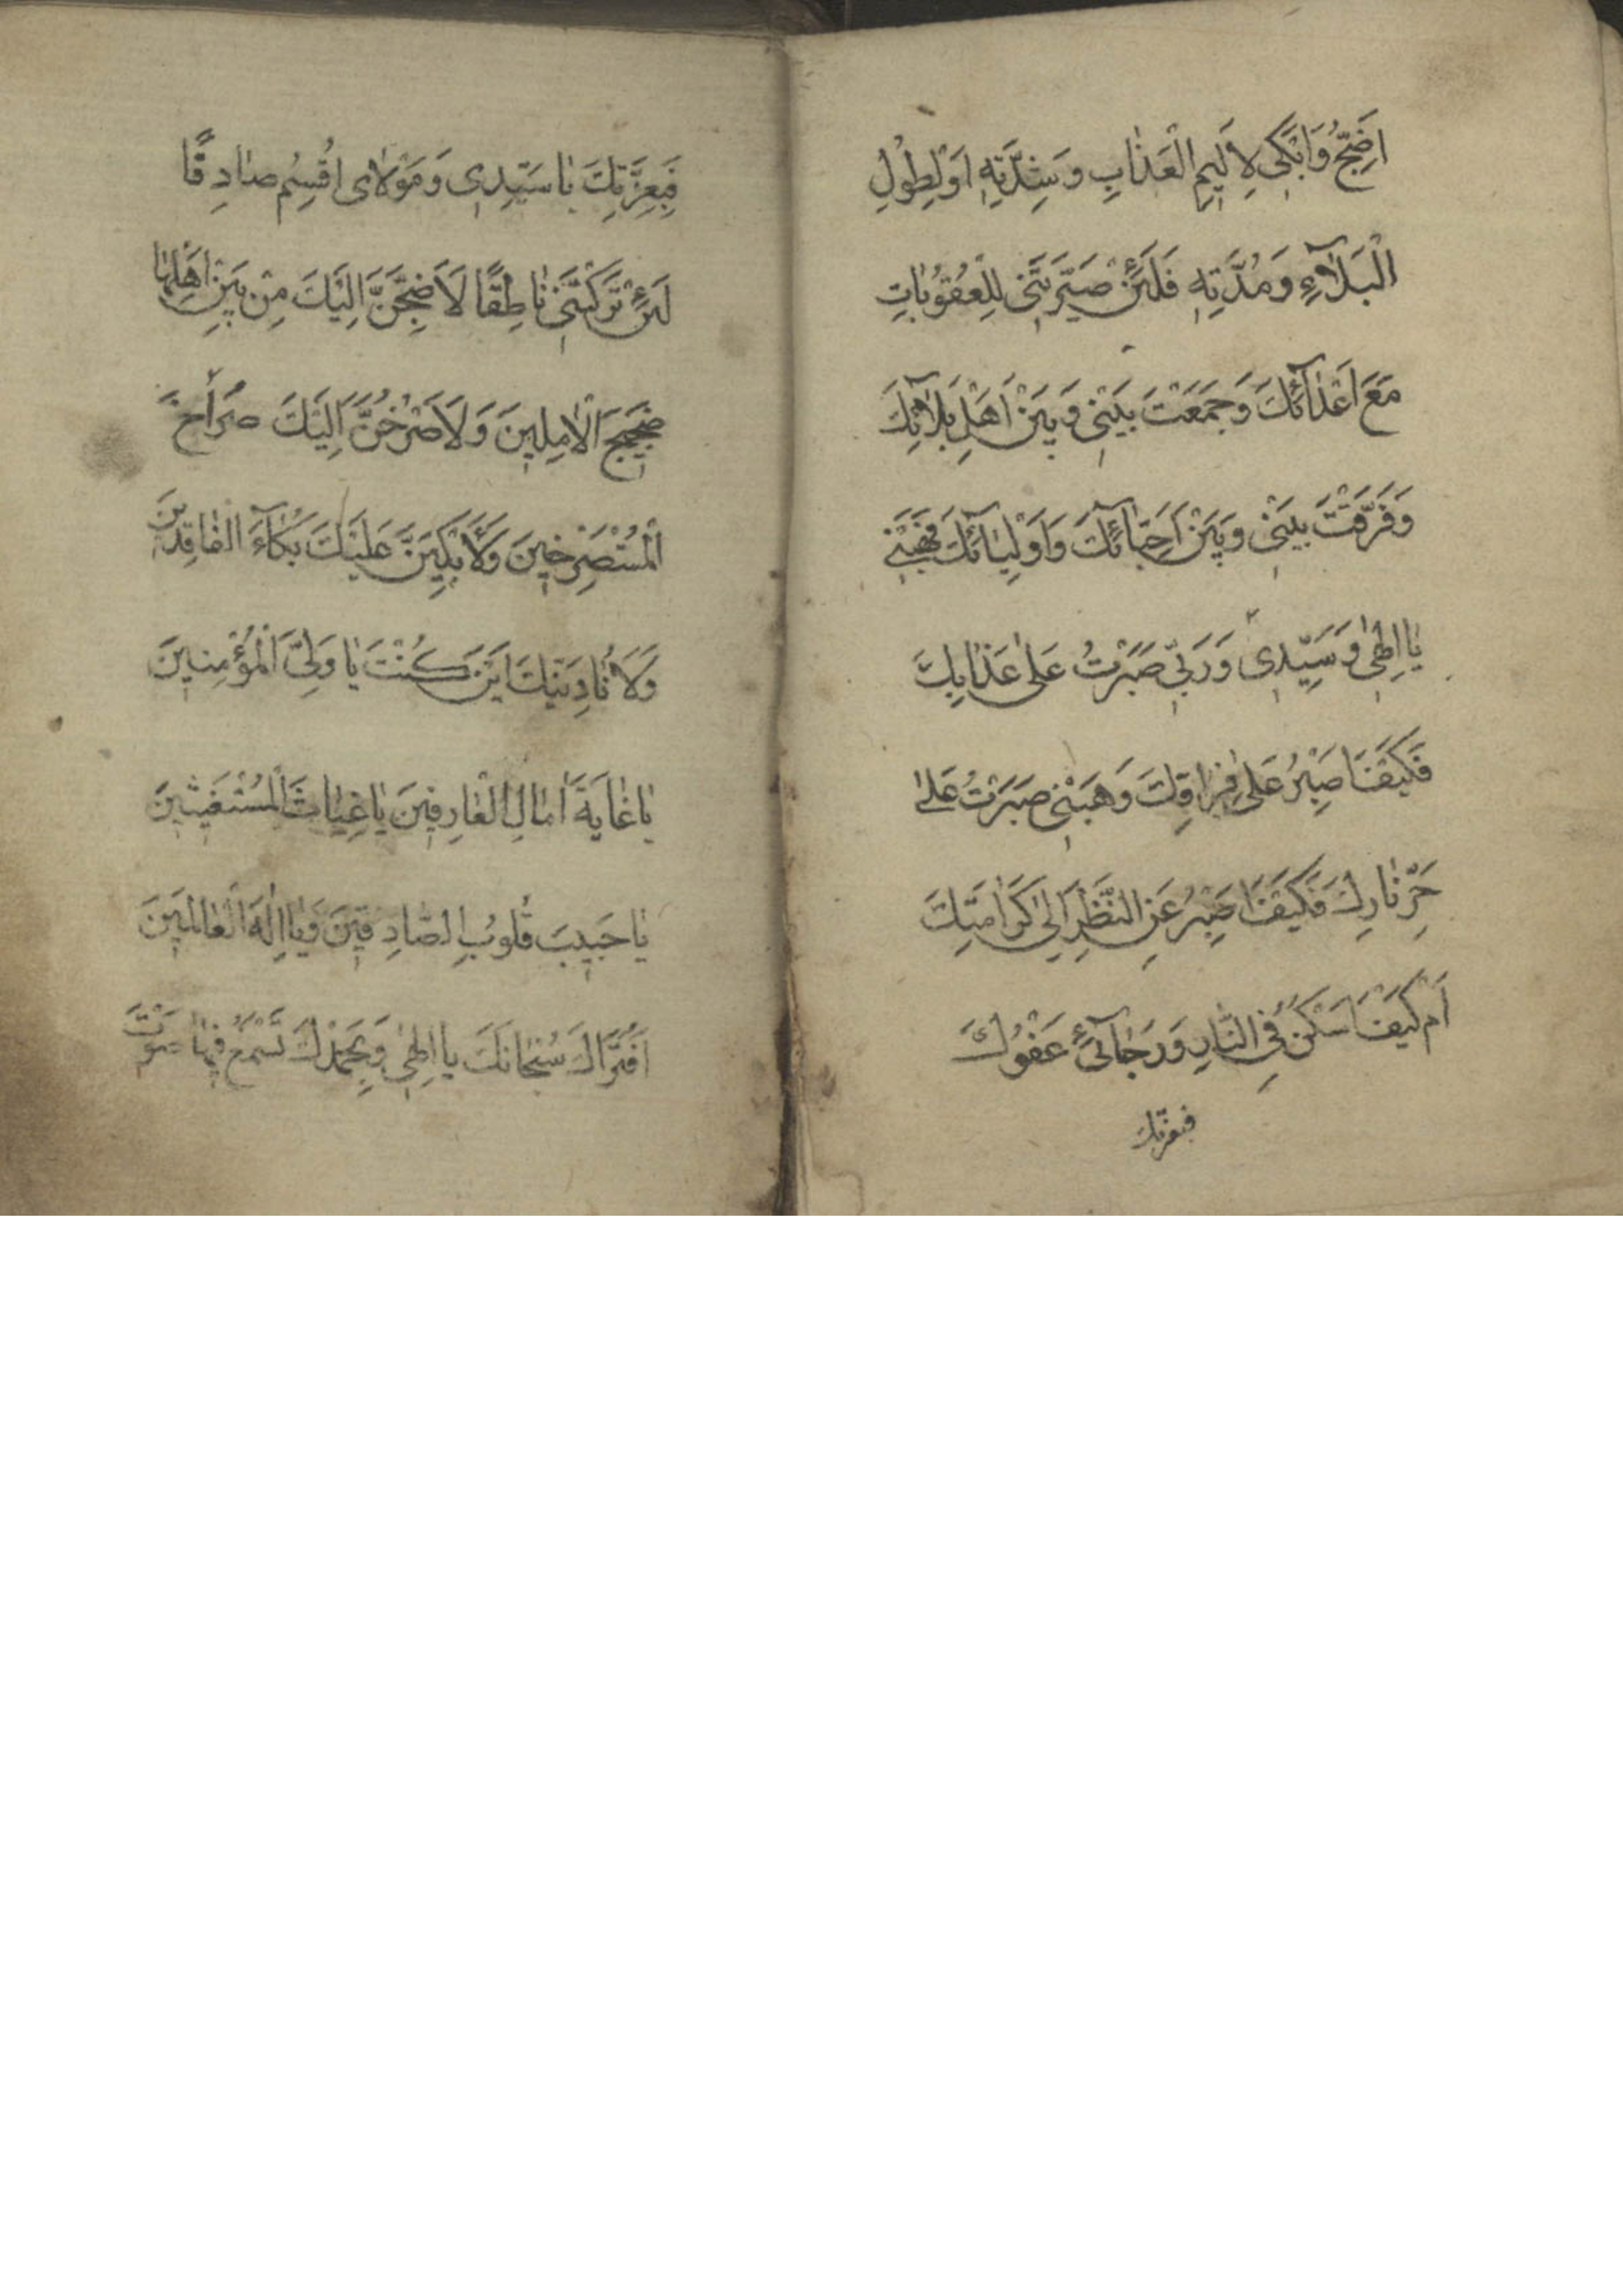 اَضِجُّ وَاَبْكى لِاَليمِ الْعَذٰابِ وَشِدَّتِهِ اَوْلِطُولِ
الْبَلٰآءِ وَمُدَّتِهِ فَلَئِنْ صَيَّرْتَنى لِلْعُقُوبٰاتِ
مَعَ اَعْدٰآئِكَ وَجَمَعْتَ بَيْنى وَبَيْنَ اَهْلِ بَلٰآئِكَ
وَفَرَّقْتَ بَيْنى وَبَيْنَ اَحِبّٰآئِكَ وَاَوْلِيٰآئِكَ فَهَبْنى
يٰا اِلٰهى وَسَيِّدى وَرَبّى صَبَرْتُ عَلىٰ عَذٰابِكَ
فَكَيْفَ اَصْبِرُ عَلىٰ فِرٰاقِكَ وَهَبْنى صَبَرْتُ عَلىٰ
حَرِّ نٰارِكَ فَكَيْفَ اَصْبِرُ عَنِ النَّظَرِ اِلىٰ كَرٰامَتِكَ
اَمْ كَيْفَ اَسْكُنُ فِى النّٰارِ وَرَجٰآئى عَفْوُكَ
فبعزتك
فَبِعِزَّتِكَ يٰا سَيِّدى وَمَوْلاٰى اُقْسِمُ صٰادِقًا
لَئِنْ تَرَكْتَنى نٰاطِقًا لَاَضِجَّنَّ اِلَيْكَ مِنْ بَيْنِ اَهْلِهٰا
ضَجيجَ الْاٰمِلينَ وَلَاَصْرُخَنَّ اِلَيْكَ صُرٰاخَ
الْمُسْتَصْرِخينَ وَلَاَبْكِيَنَّ عَلَيْكَ بُكٰآءَ الْفٰاقِدينَ
وَلَاُنٰادِيَنَّكَ اَيْنَ كُنْتَ يٰا وَلِىَّ الْمُؤْمِنينَ
يٰا غٰايَةَ اٰمٰالِ الْعٰارِفينَ يٰا غِيٰاثَ الْمُسْتَغيثينَ
يٰا حَبيبَ قُلُوبِ الصّٰادِقينَ وَيٰا اِلٰهَ الْعٰالَمينَ
اَفَتُرٰاكَ سُبْحٰانَكَ يٰا اِلٰهى وَبِحَمْدِكَ تَسْمَعُ فيهٰا صَوْتَ